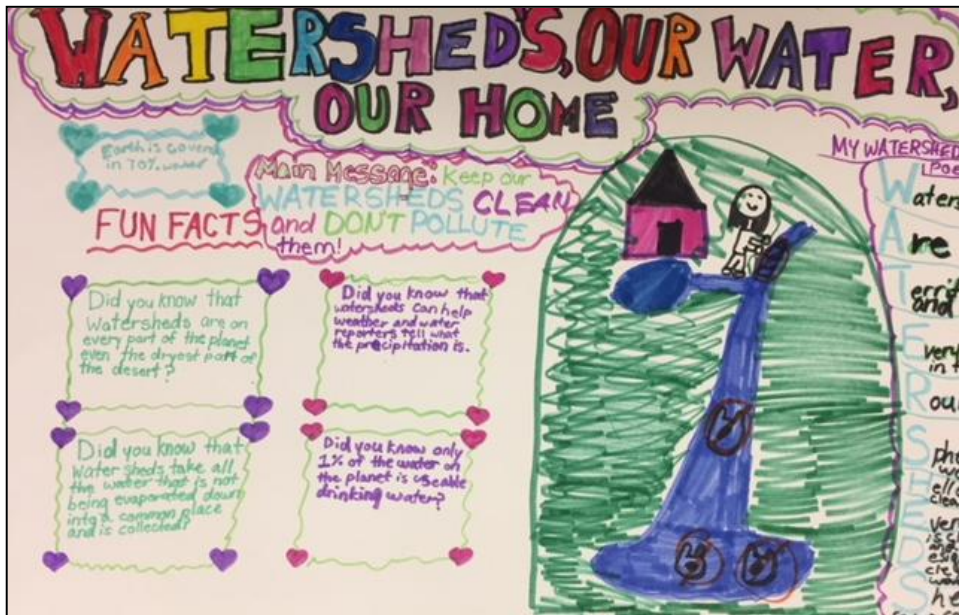 WATERSHED'S, OUR WATER,
OUR HOME
Earth is covered
in 70% water
Main Message: Keep our
WATERSHEDS CLEAN
and DON'T POLLUTE
them!
FUN FACTS
Did you know that
Watersheds are on
every part of the planet
even the dryest part of
the desert?
Did you know that
watersheds can help
weather and water
reporters tell what
the precipitation is.
Did you know that
Water sheds take all
the water that is not
being evaporated down
into a common place
and is collected?
Did you know only
1% of the water on
the planet is useable
drinking water?
MY WATERSHED
Are
and
very
in
our